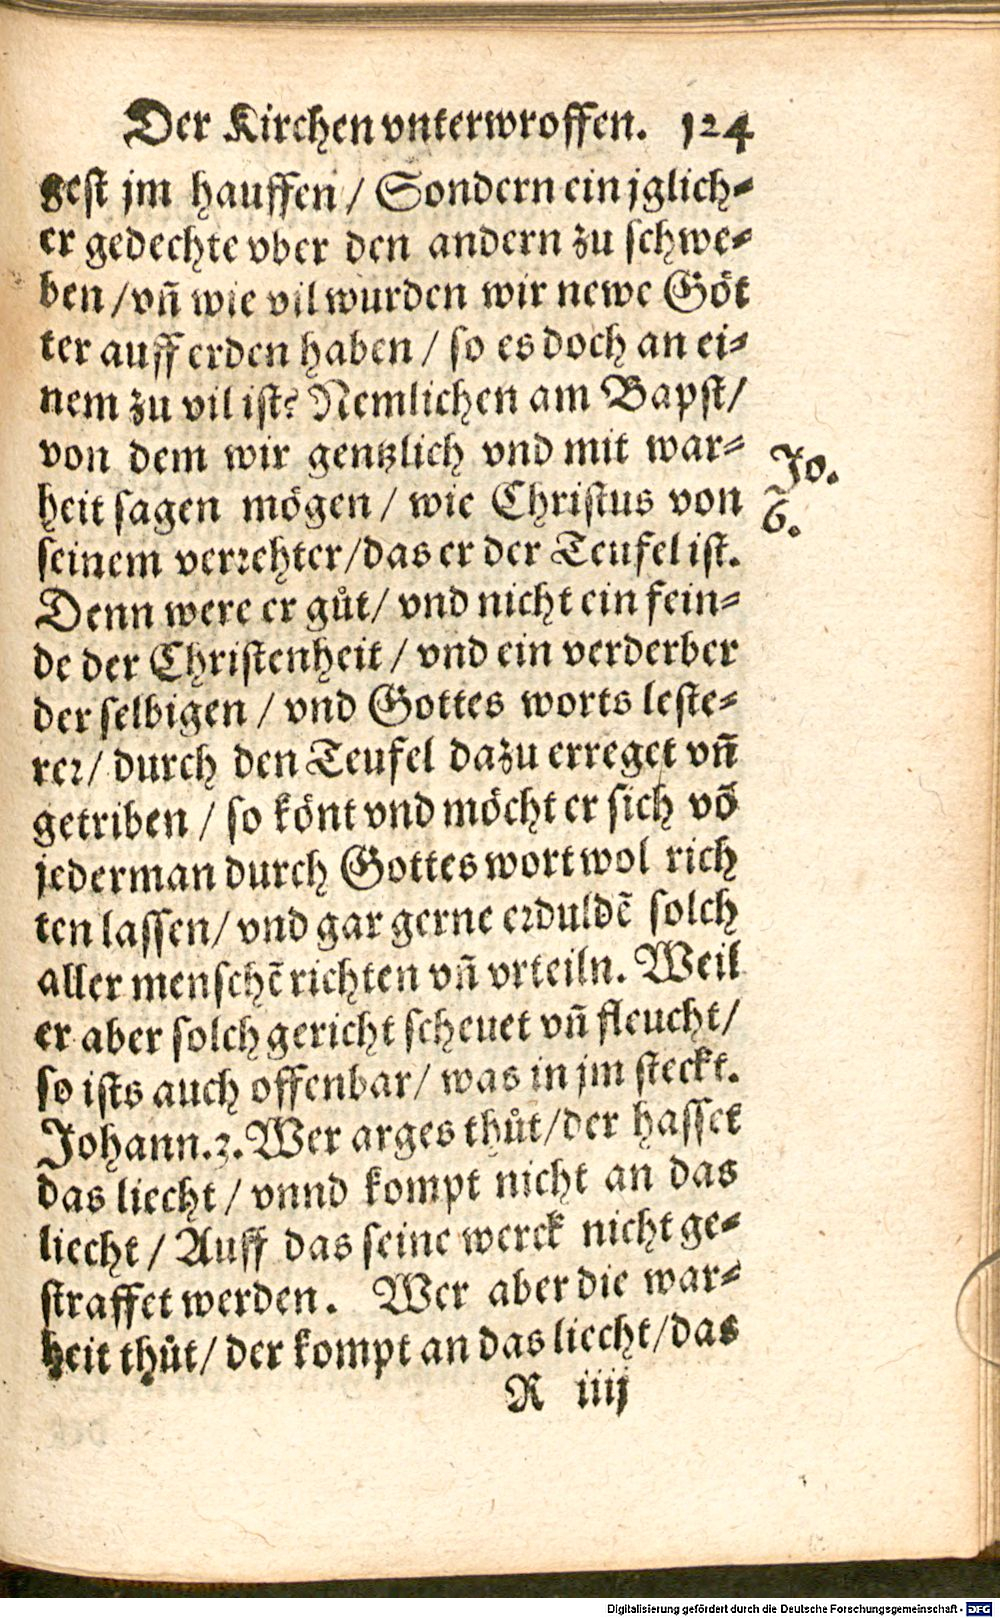 Der Kirchen vnterwroffen. 124
gest jm hauffen / Sondern ein jglich-
er gedechte vber den andern zu schwe-
ben / vñ wie vil wurden wir newe Göt
ter auff erden haben / so es doch an ei-
nem zu vil ist? Nemlichen am Bapst /
von dem wir gentzlich vnd mit war-
heit sagen mögen / wie Christus von
seinem verrehter / das er der Teufel ist.
Jo.
6.
Denn were er gůt / vnd nicht ein fein-
de der Christenheit / vnd ein verderber
der selbigen / vnd Gottes worts leste-
rer / durch den Teufel dazu erreget vñ
getriben / so könt vnd möcht er sich võ
jederman durch Gottes wort wol rich
ten lassen / vnd gar gerne erduldẽ solch
aller menschẽ richten vñ vrteiln. Weil
er aber solch gericht scheuet vñ fleucht /
so ists auch offenbar / was in jm steckt.
Johann. 3. Wer arges thůt / der hasset
das liecht / vnnd kompt nicht an das
liecht / Auff das seine werck nicht ge-
straffet werden. Wer aber die war-
heit thůt / der kompt an das liecht / das
R iiij
Digitalisierung gefördert durch die Deutsche Forschungsgemeinschaft - DFG